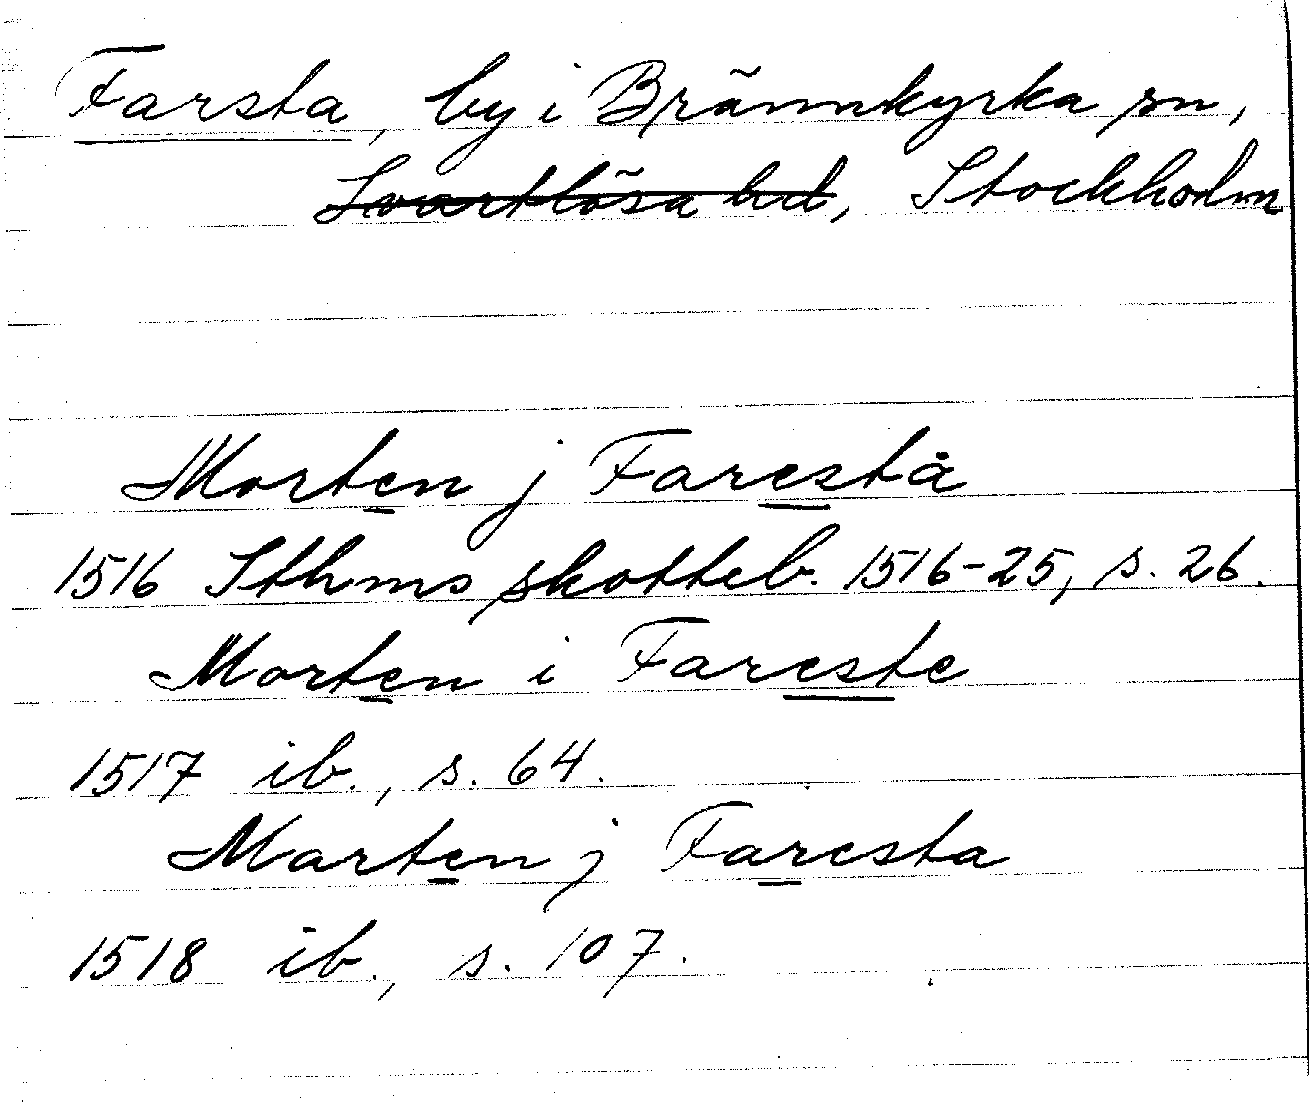 Farsta, by i Brännkyrka sn,
Svartlösa hd, Stockholm
Morten j Farestå
1516 Sthms skotteb. 1516-25, s. 26.
Morten i Fareste
1517 ib., s. 64.
Marten j Faresta
1518 ib., s. 107.